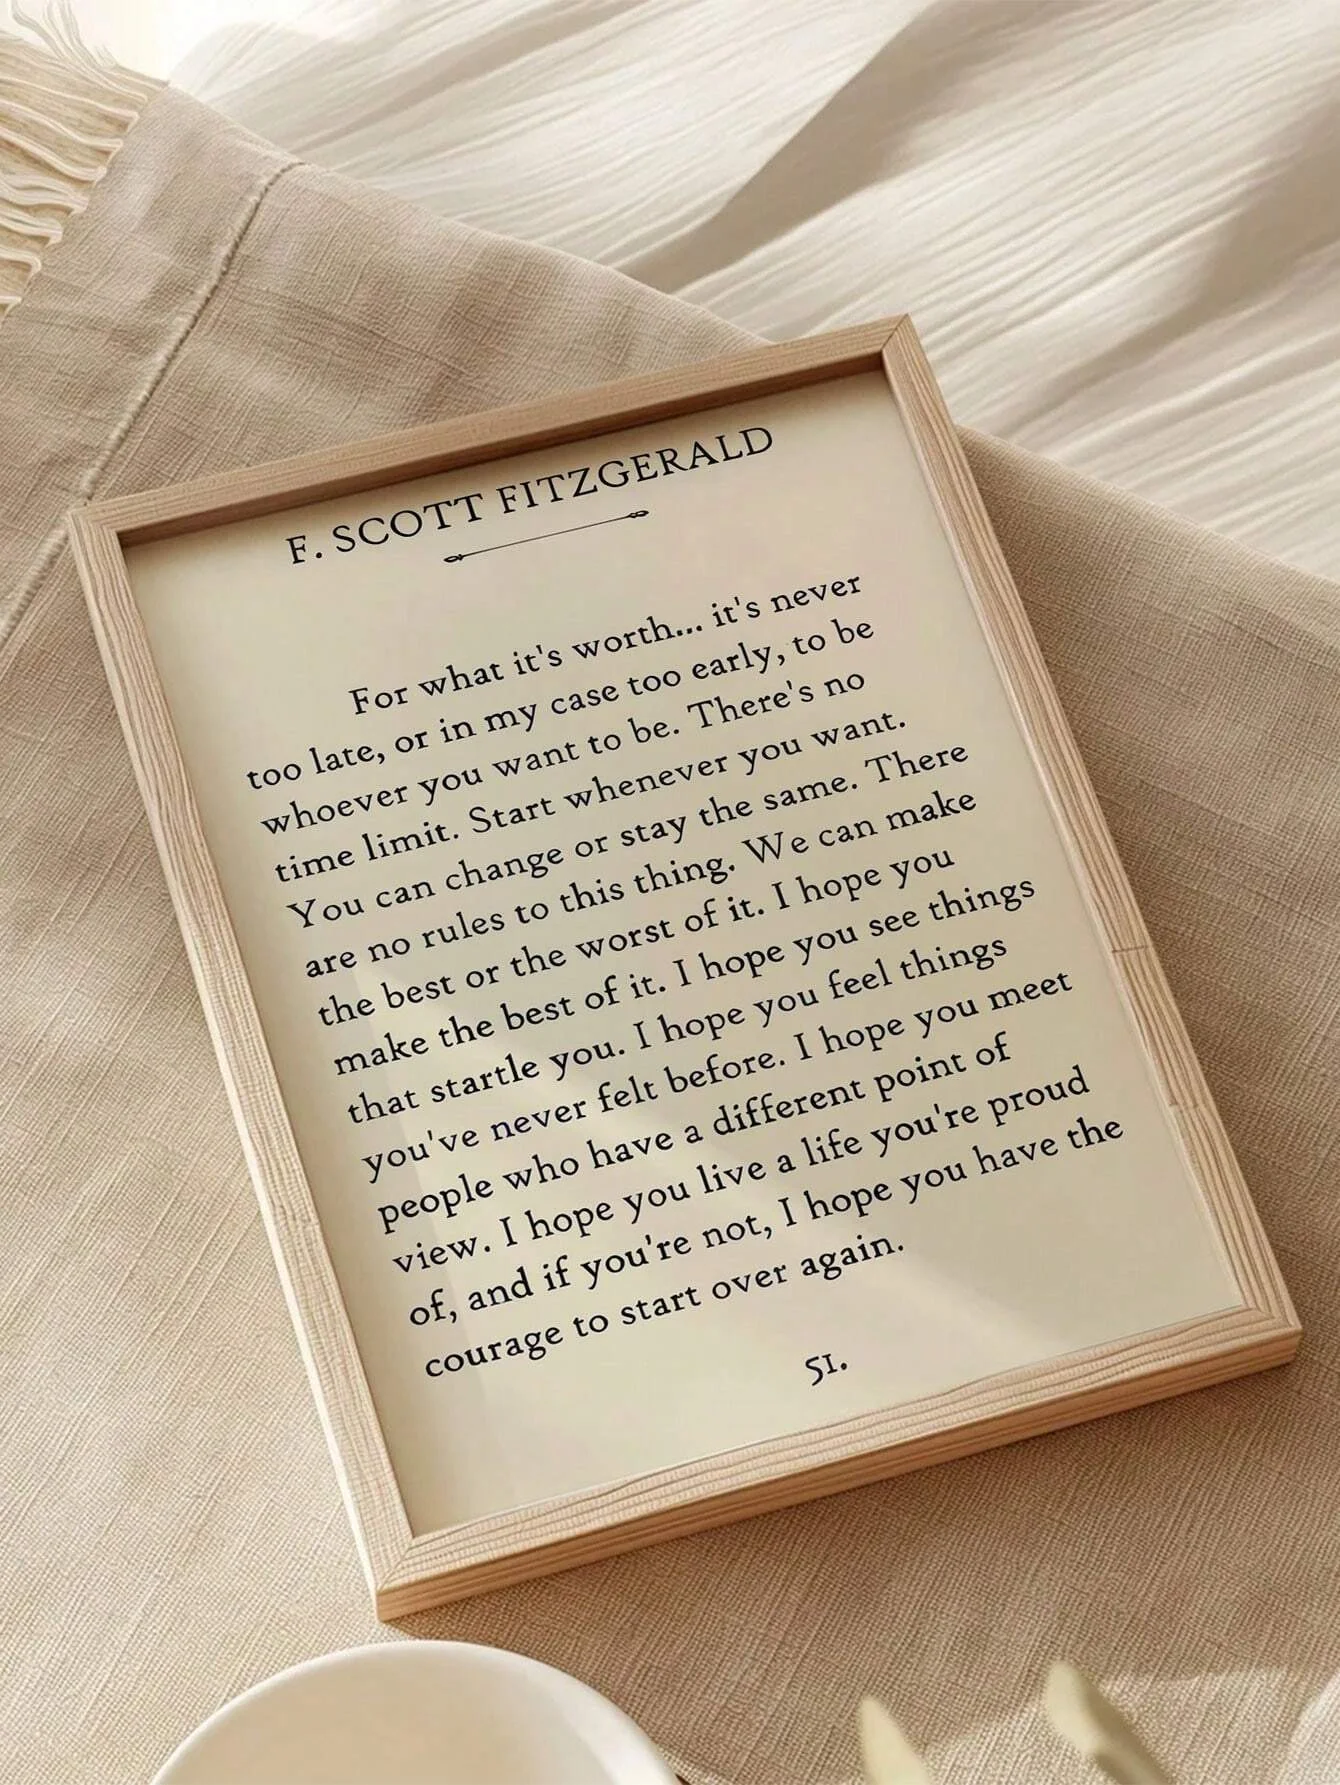 F. SCOTT FITZGERALD
For what it's worth... it's never
too late, or in my case too early, to be
whoever you want to be. There's no
time limit. Start whenever you want.
You can change or stay the same. There
are no rules to this thing. We can make
the best or the worst of it. I hope you
make the best of it. I hope you see things
that startle you. I hope you feel things
you've never felt before. I hope you meet
people who have a different point of
view. I hope you live a life you're proud
of, and if you're not, I hope you have the
courage to start over again.
51.